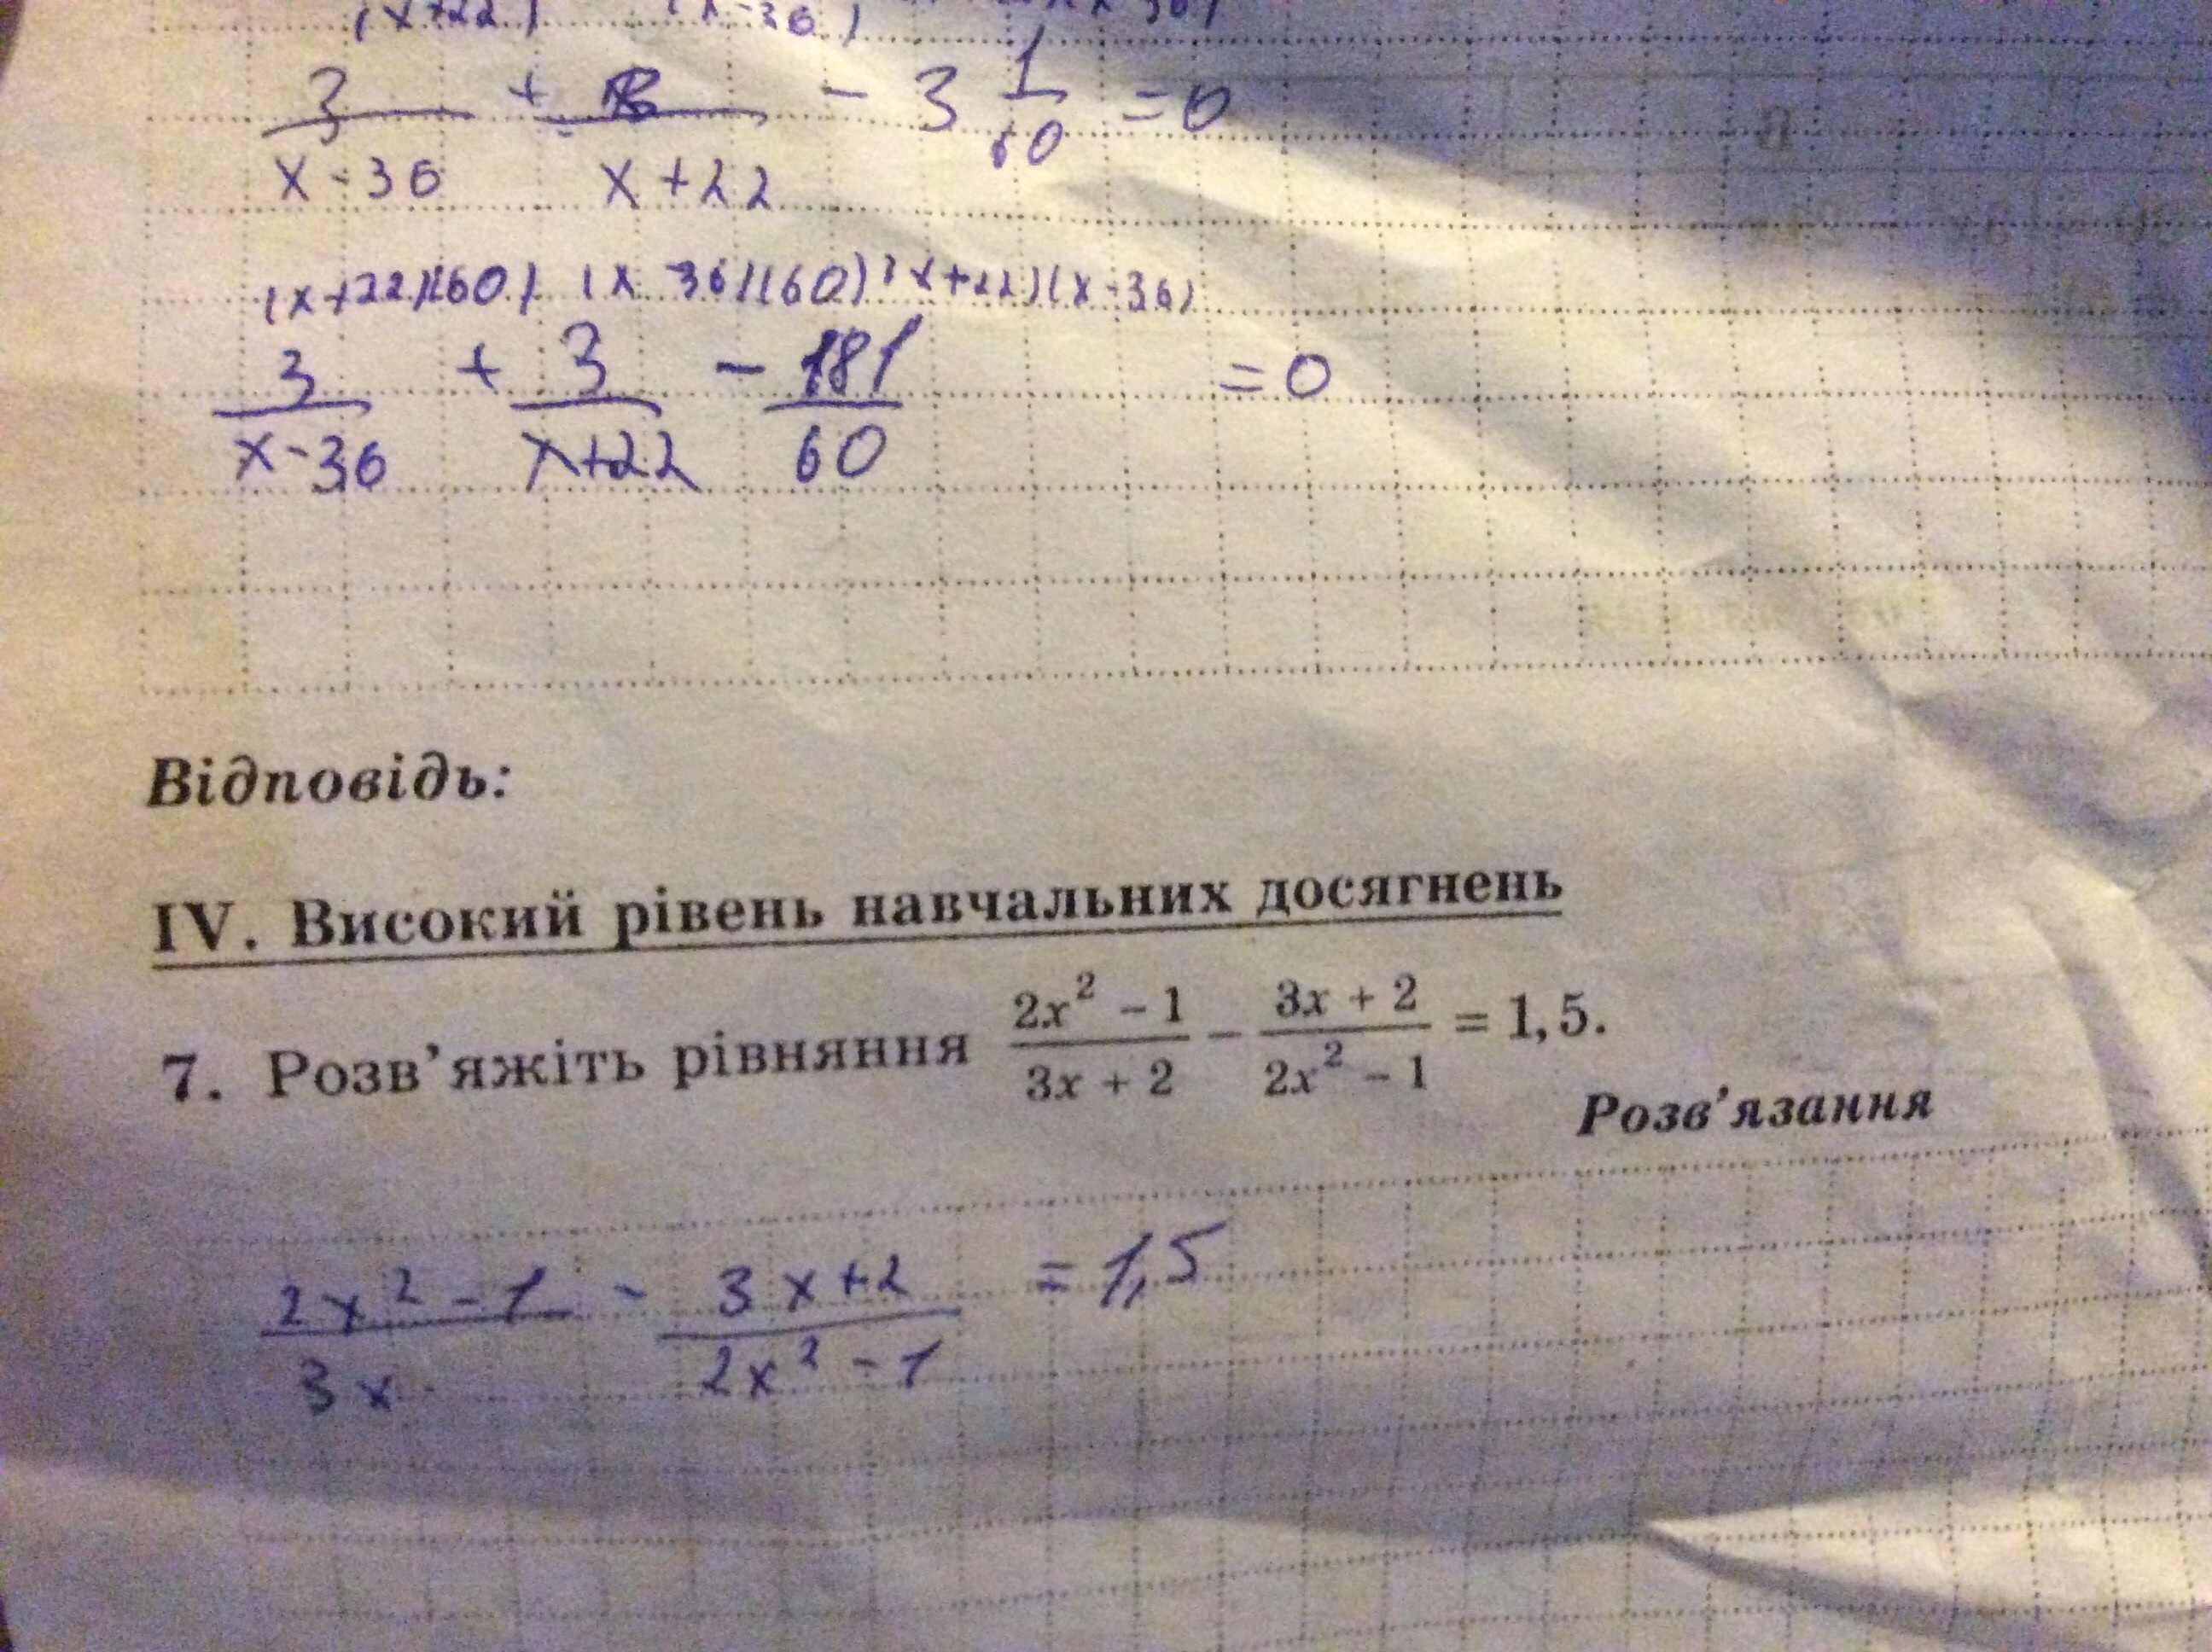 3/(x-36) + /(x+22) - 3 1/60 = 0
(x+22)(60) (x-36)(60) (x+22)(x-36)
3/(x-36) + 3/(x+22) - 181/60 = 0
Відповідь:
IV. Високий рівень навчальних досягнень
7. Розв'яжіть рівняння (2x² - 1)/(3x + 2) - (3x + 2)/(2x² - 1) = 1,5.
Розв'язання
(2x² - 1)/(3x) - (3x+2)/(2x² - 1) = 1,5